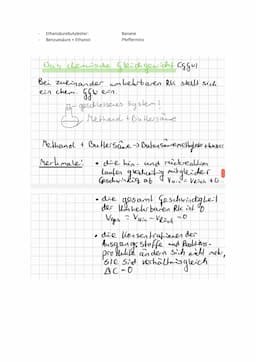 - Ethansäurebutylester: Banane
- Benzoesäure + Ethanol: Pfefferminz
Das chemische Gleichgewicht (ggw)
Bei zueinander umkehrbaren Rk stellt sich
ein chem. ggw ein.
geschlossenes System!
Methanol + Buttersäure
Methanol + Buttersäure → Butansäuremethylester + Wasser
Merkmale: • die hin- und rückreaktion
laufen gleichzeitig mit gleicher
Geschwindigkeit ab
• die gesamt Geschwindigkeit
der Umkehrbaren Rk ist 0
Vges = Vhin - Vrück = 0
• die Konzentrationen der
Ausgangsstoffe und Reaktions-
produkte ändern sich nicht mehr,
sie sind verhältnisgleich
ΔC = 0